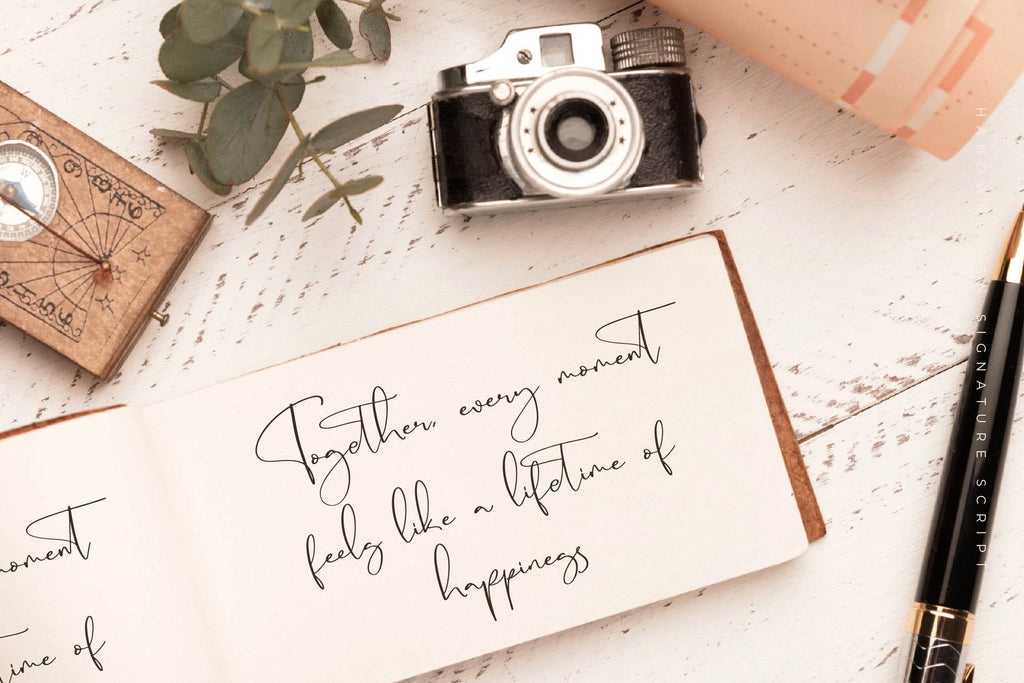 Together, every moment
feels like a lifetime of
happiness
moment
time of
SIGNATURE SCRIPT